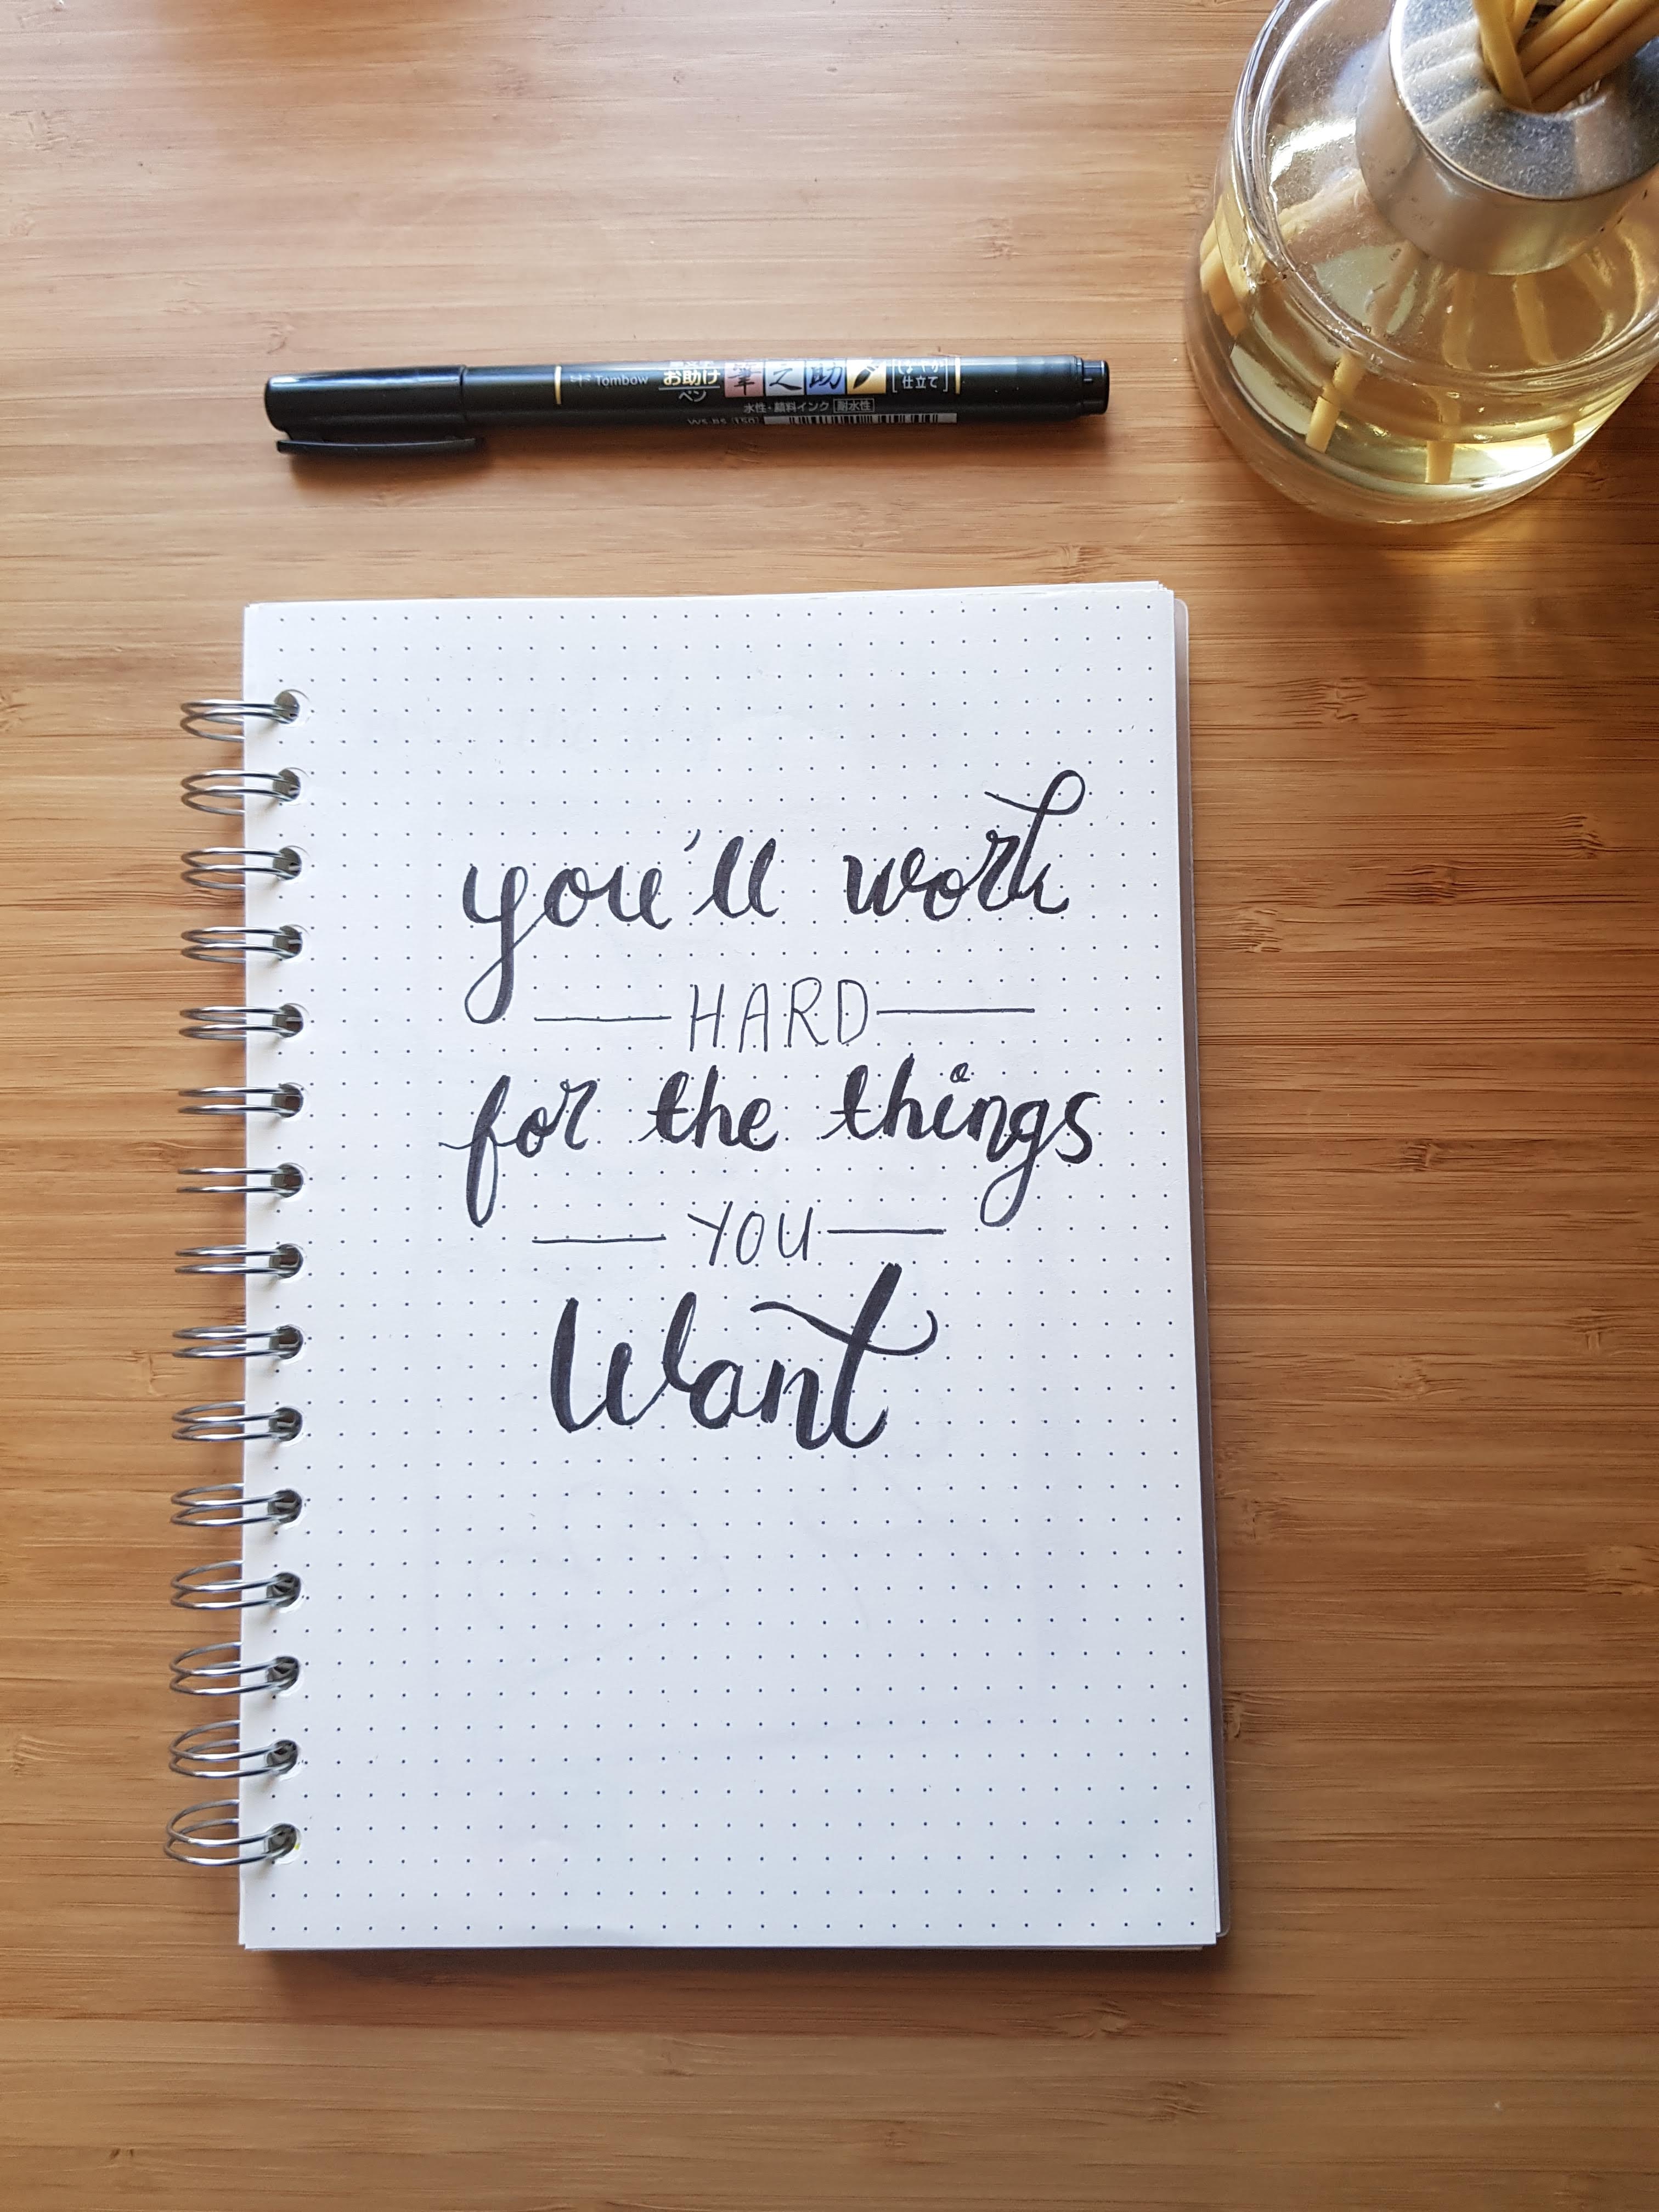 Tombow お助け ペン 筆之助 仕立て
水性・顔料インク 耐水性
WS-BS 150
you'll work
HARD
for the things
YOU
Want